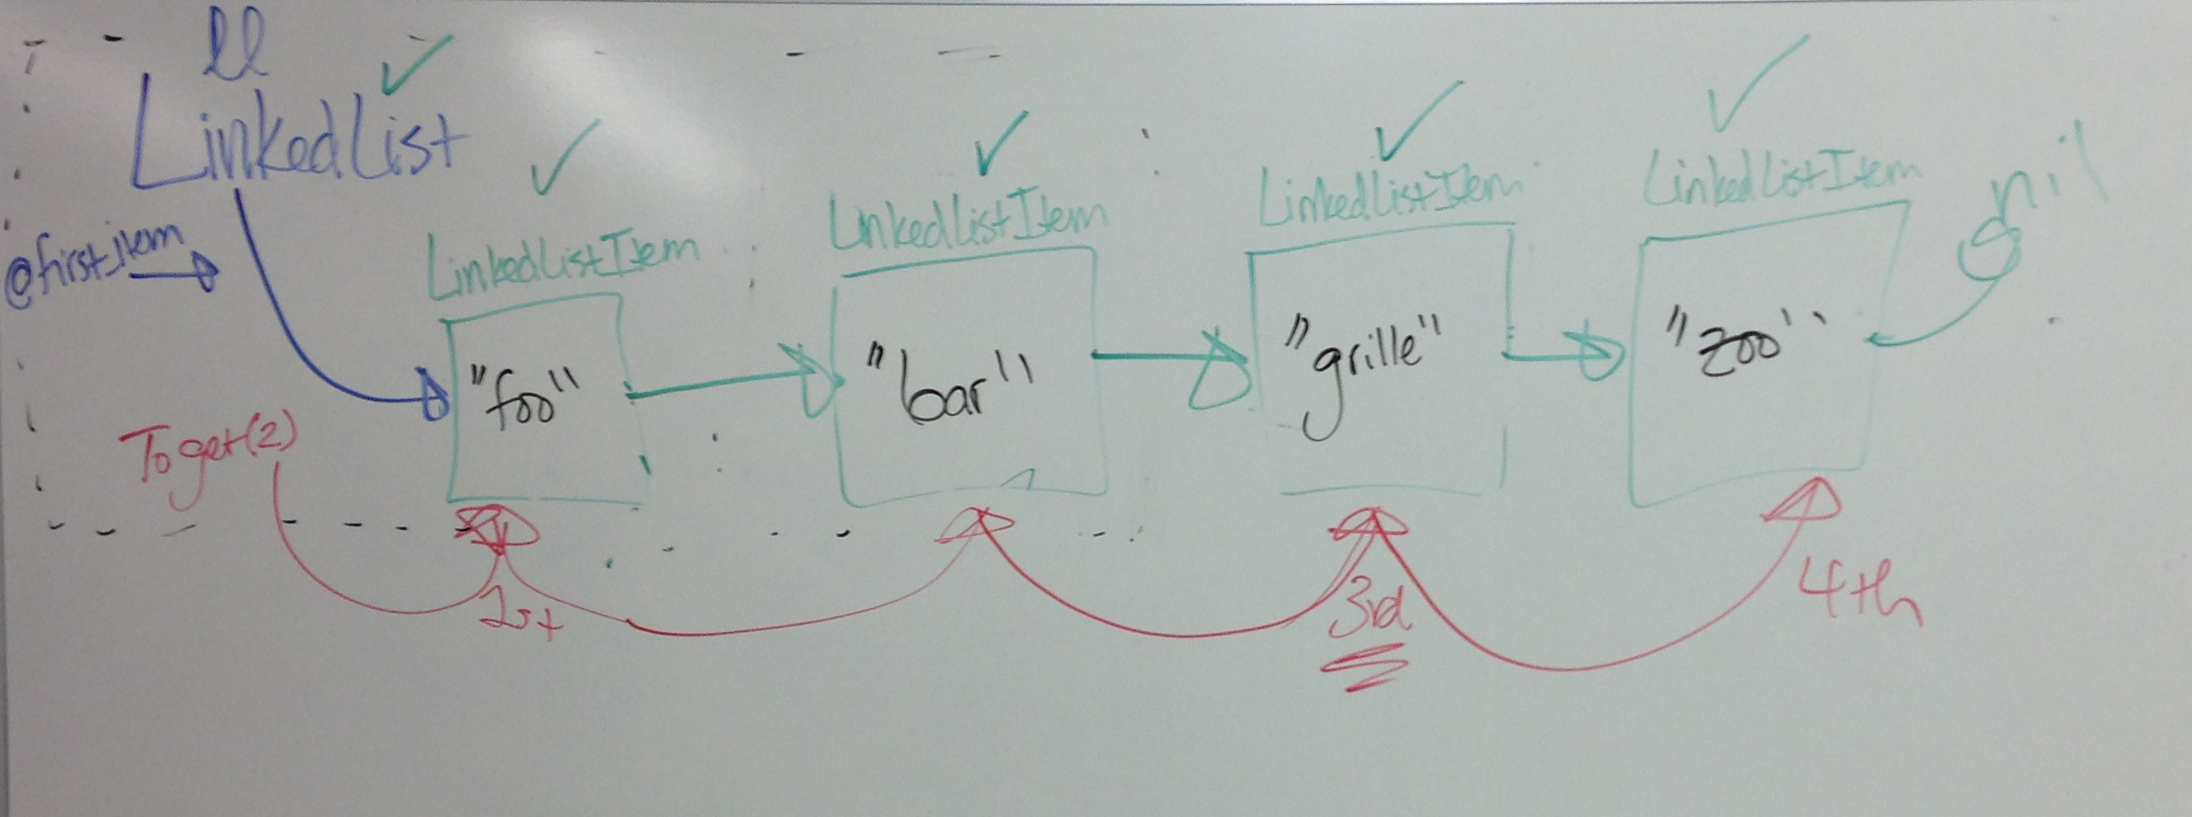 ll
LinkedList
@first_item
LinkedListItem
"foo"
LinkedListItem
"bar"
LinkedListItem
"grille"
LinkedListItem
"zoo"
nil
To get(2)
1st
3rd
4th